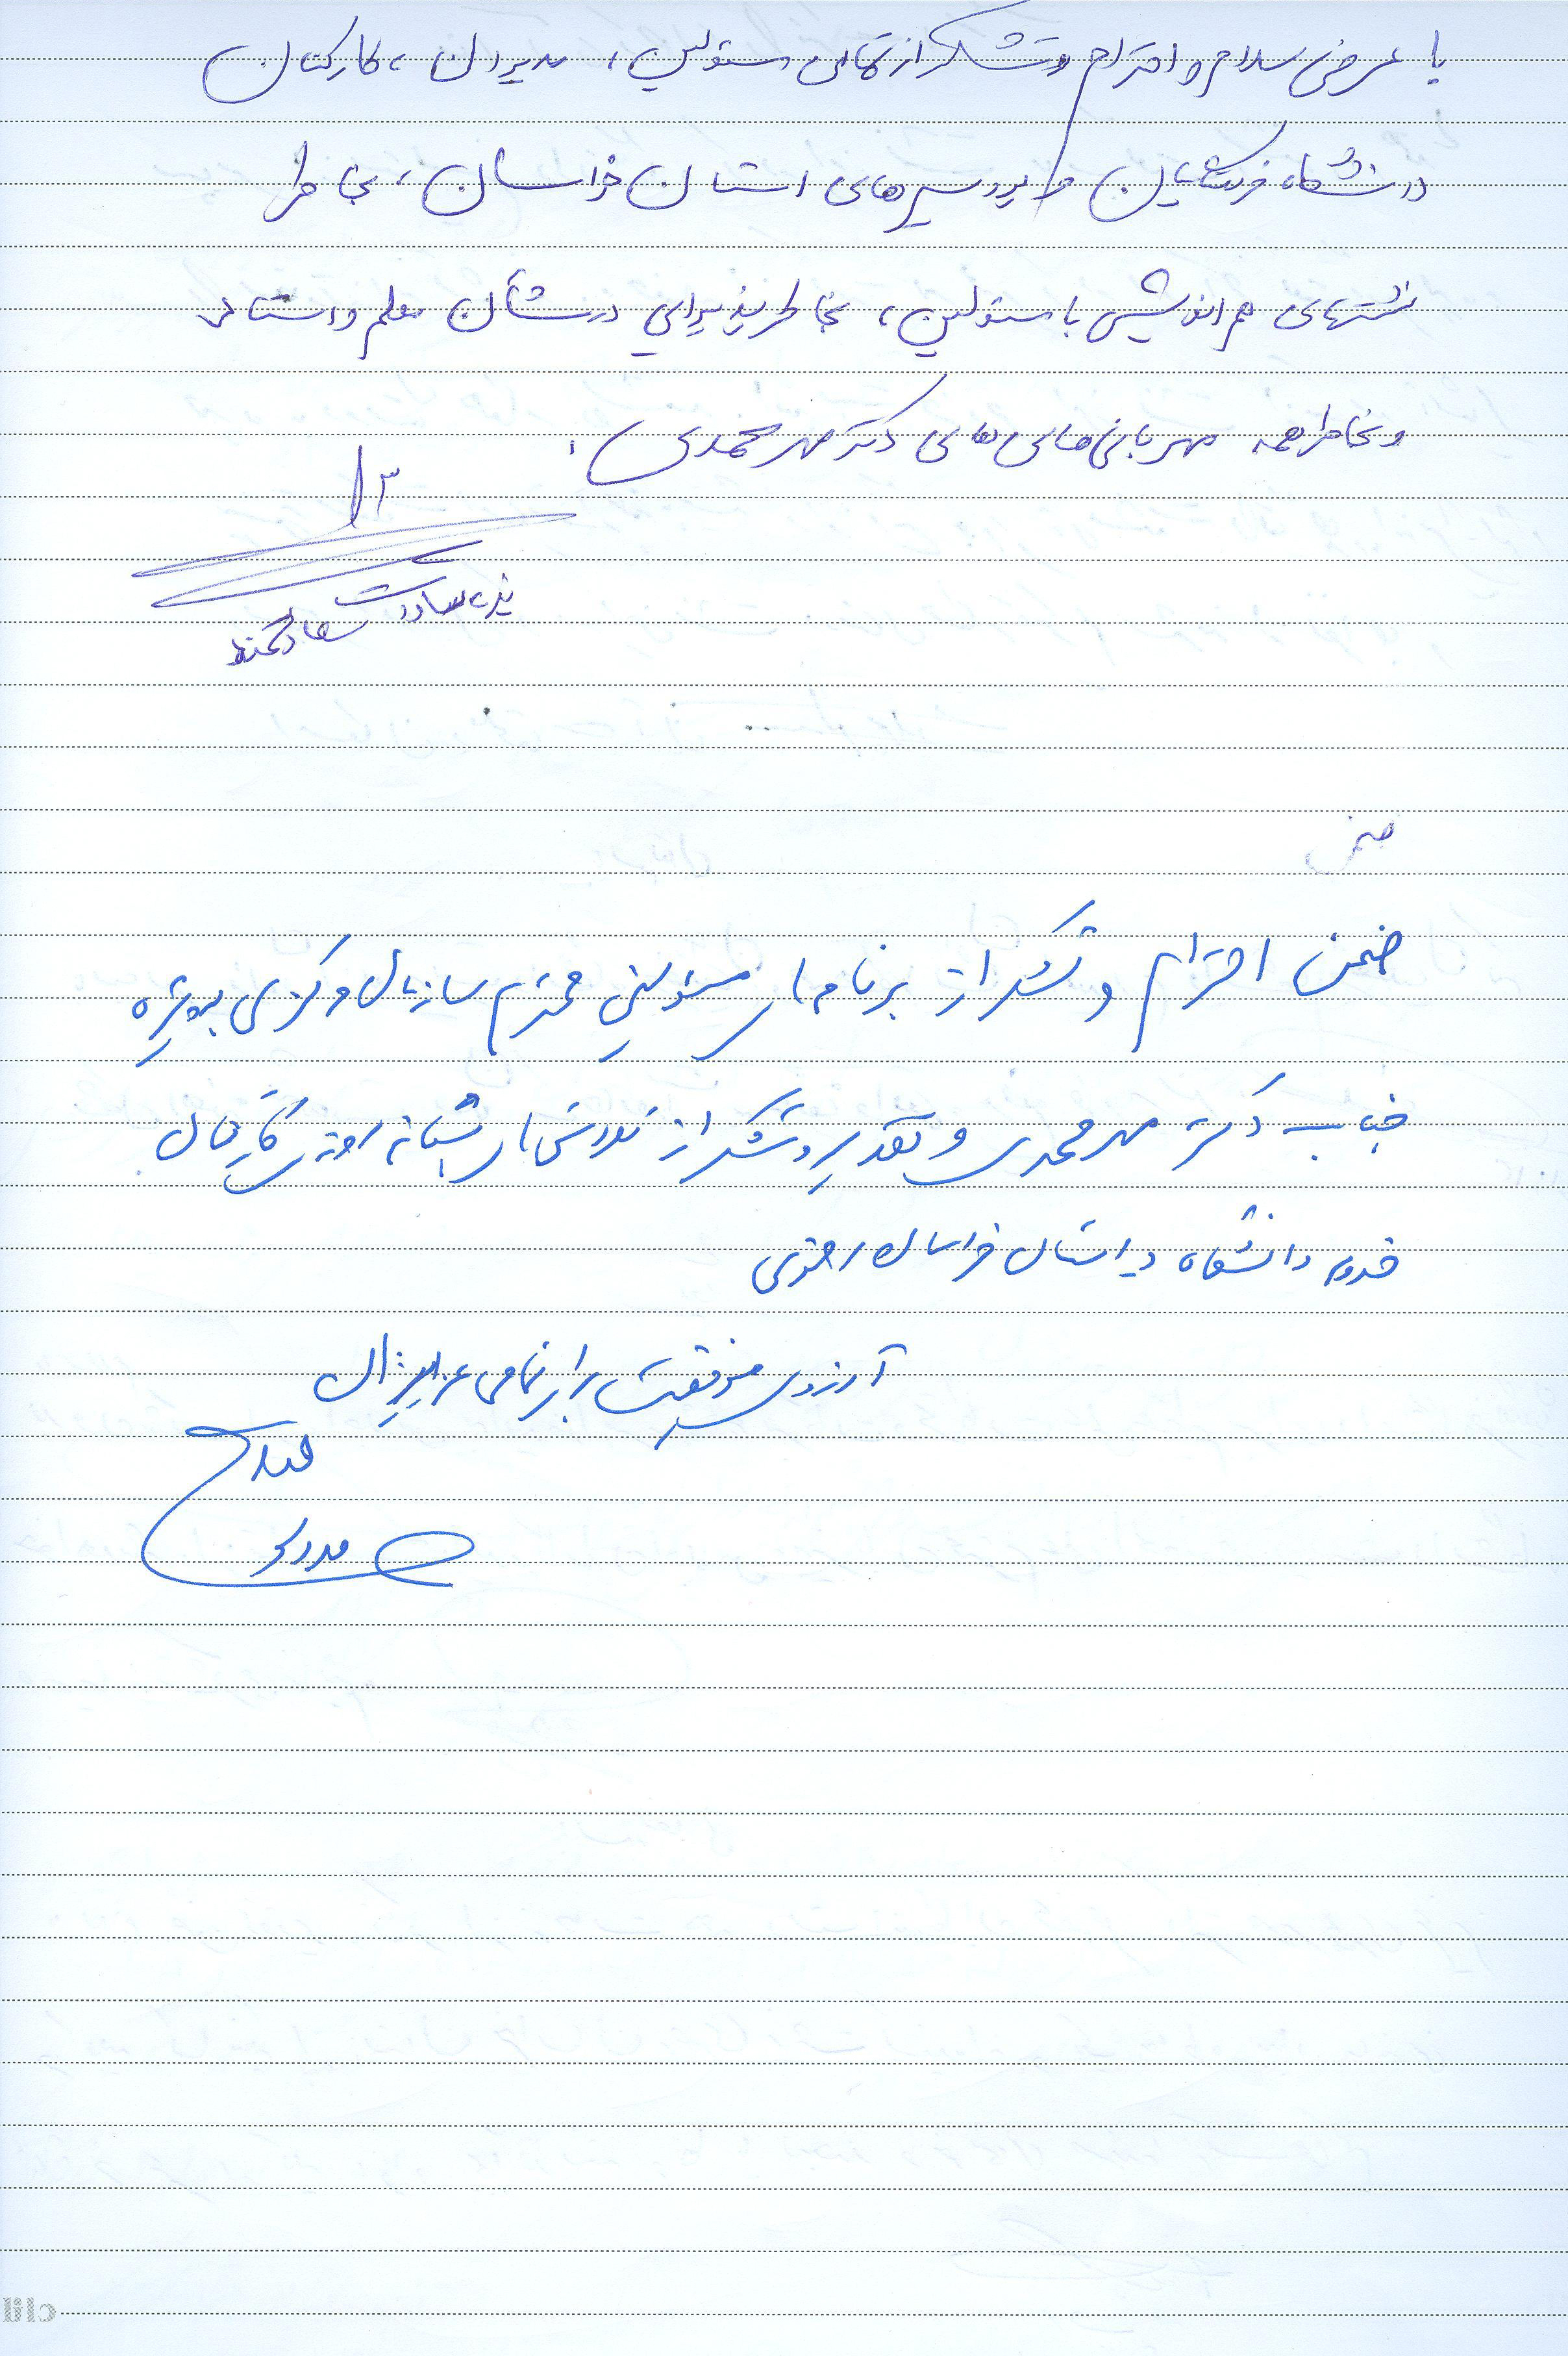 با عرض سلام و احترام و تشکر از تمامی مسئولین، مدیران، کارکنان
دانشگاه فرهنگیان و پردیس‌های استان خراسان، بخاطر
نشستهای هم اندیشی با مسئولین، بخاطر پذیرایی در شأن معلم و استاد
و بخاطر همه مهربانی‌های های دکتر مهرمحمدی.
سادات
ضمن
ضمن احترام و تشکر از برنامه‌ها مسئولین محترم سازمان مرکزی بویژه
جناب دکتر مهرمحمدی و تقدیر و تشکر از شبانه روزی کارکنان
خدوم دانشگاه در استان خراسان رضوی
آرزوی موفقیت برای تمامی عزیزان